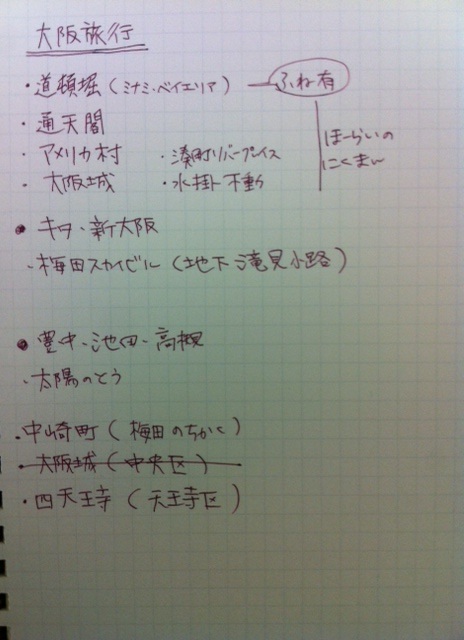 大阪旅行
・道頓堀(ミナミ・ベイエリア) ふね有
・通天閣
・アメリカ村 ・湊町リバープレイス
・大阪城 ・水掛不動
ほーらいの
にくまん
●キタ・新大阪
・梅田スカイビル(地下滝見小路)
●豊中・池田・高槻
・太陽のとう
・中崎町(梅田のちかく)
・大阪城(中央区)
・四天王寺(天王寺区)